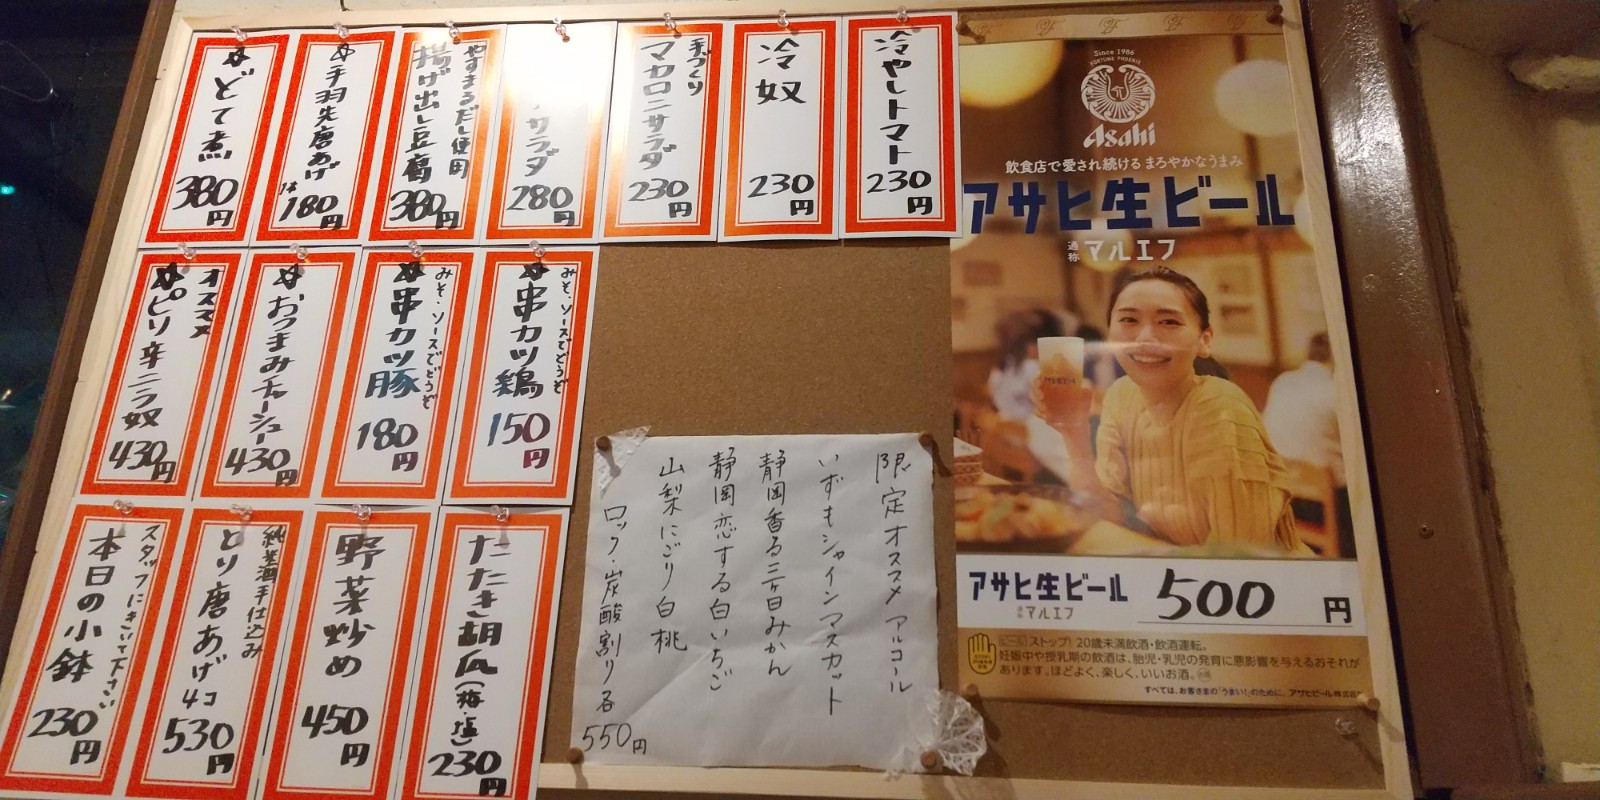 冷やしトマト
230円
冷奴
230円
手づくり
マカロニサラダ
230円
サラダ
280円
やすまるだし使用
揚げ出し豆腐
380円
手羽先唐あげ
180円
どて煮
380円
みそ、ソースでどうぞ
串カツ鶏
150円
みそ、ソースでどうぞ
串カツ豚
180円
おつまみチャーシュー
430円
オススメ
ピリ辛ニラ奴
430円
たたき胡瓜(梅・塩)
230円
野菜炒め
450円
純米酒手仕込み
とり唐あげ
4コ
530円
スタッフにきいて下さい
本日の小鉢
230円
限定オススメアルコール
いずもシャインマスカット
静岡香る三ヶ日みかん
静岡恋する白いちご
山梨にごり白桃
ロック・炭酸割り各
550円
Since 1986
FORTUNE PHOENIX
Asahi
飲食店で愛され続けるまろやかなうまみ
アサヒ生ビール
通称 マルエフ
アサヒ生ビール
通称 マルエフ
500円
ビール ストップ! 20歳未満飲酒・飲酒運転。
妊娠中や授乳期の飲酒は、胎児・乳児の発育に悪影響を与えるおそれが
あります。ほどよく、楽しく、いいお酒。
すべては、お客さまの「うまい!」のために。アサヒビール株式会社